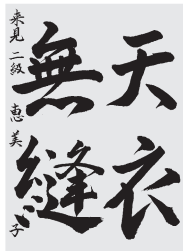 天衣
無縫
来見 二級 恵美子